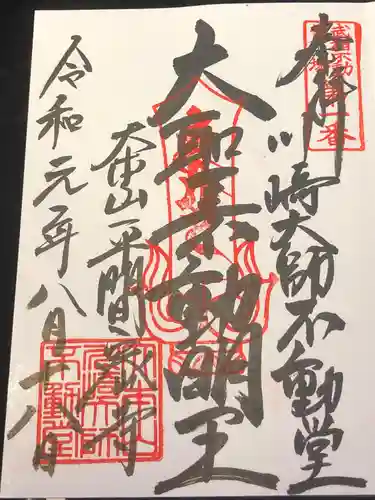 奉拝
川崎大師不動堂
大聖不動明王
大本山平間寺
令和元年八月廿八日